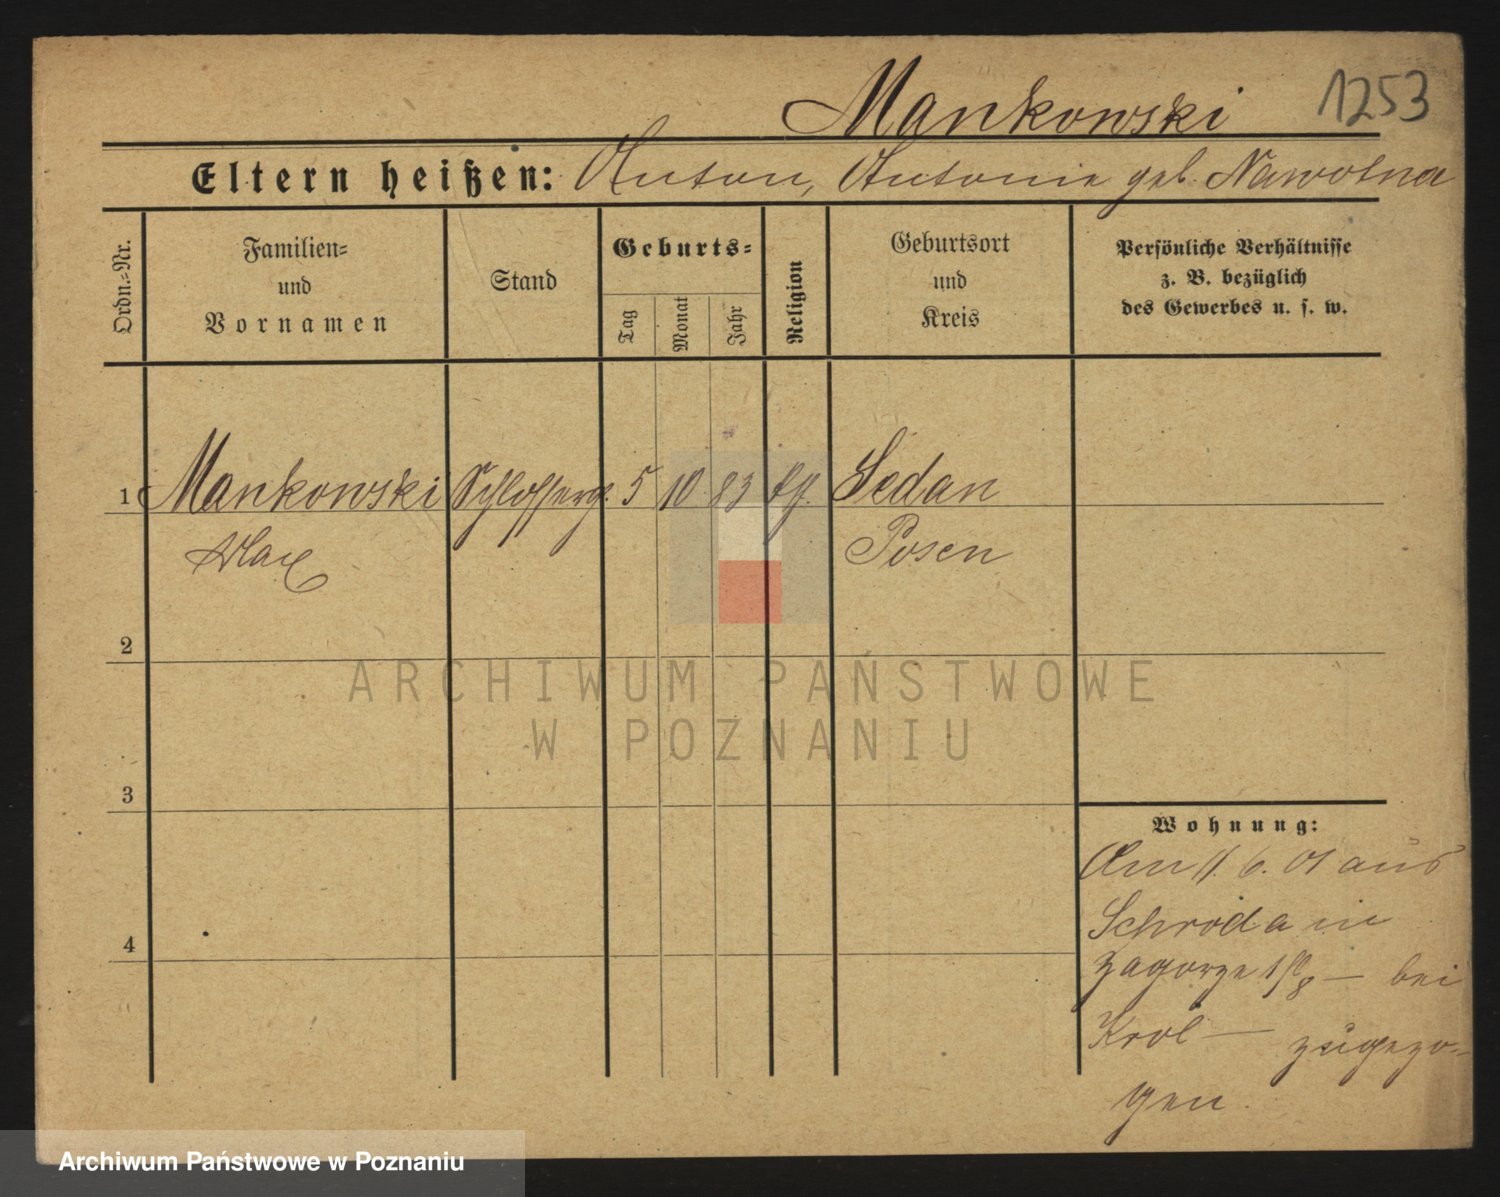 Mankowski 1253
Eltern heißen: Anton, Antonie geb. Nawotna
Ordn.-Nr.
Familien-
und
Vornamen
Stand
Geburts-
Tag
Monat
Jahr
Religion
Geburtsort
und
Kreis
Persönliche Verhältnisse
z. B. bezüglich
des Gewerbes u. s. w.
1 Mankowski Schlosserg. 5 10 83 Sedan
Max Posen
2
3
4
Wohnung:
Am 11. 6. 01 aus
Schroda in
Zagorze bei
Krol — zugezo-
gen.
ARCHIWUM PAŃSTWOWE
W POZNANIU
Archiwum Państwowe w Poznaniu